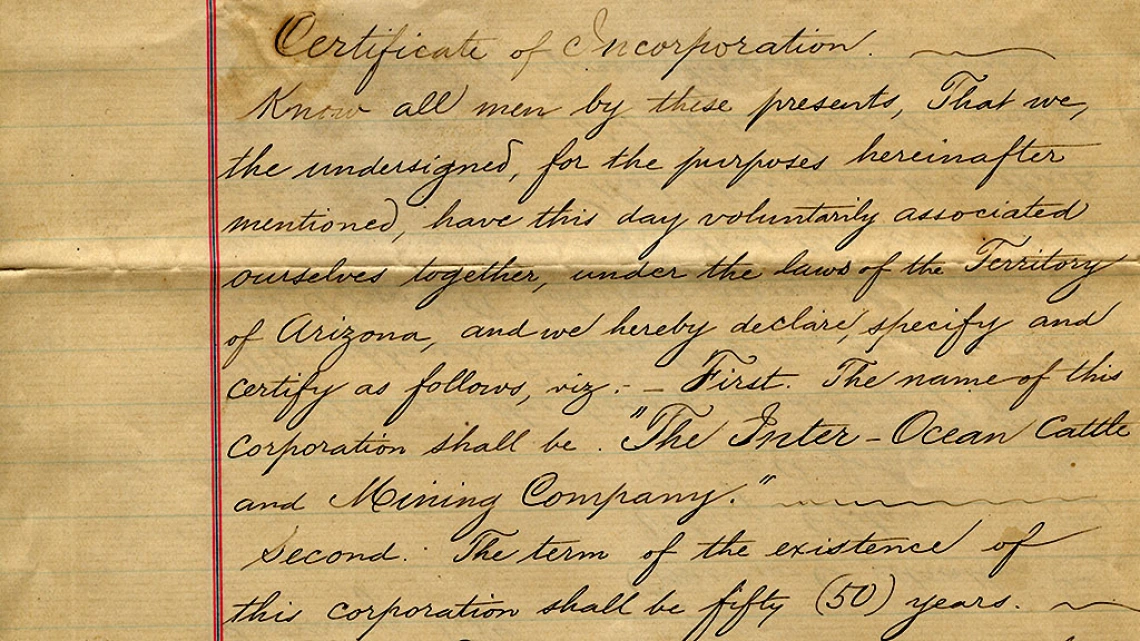 Certificate of Incorporation.
Know all men by these presents, That we,
the undersigned, for the purposes hereinafter
mentioned, have this day voluntarily associated
ourselves together, under the laws of the Territory
of Arizona, and we hereby declare, specify and
certify as follows, viz:- First. The name of this
corporation shall be. "The Inter-Ocean Cattle
and Mining Company."
Second. The term of the existence of
this corporation shall be fifty (50) years.